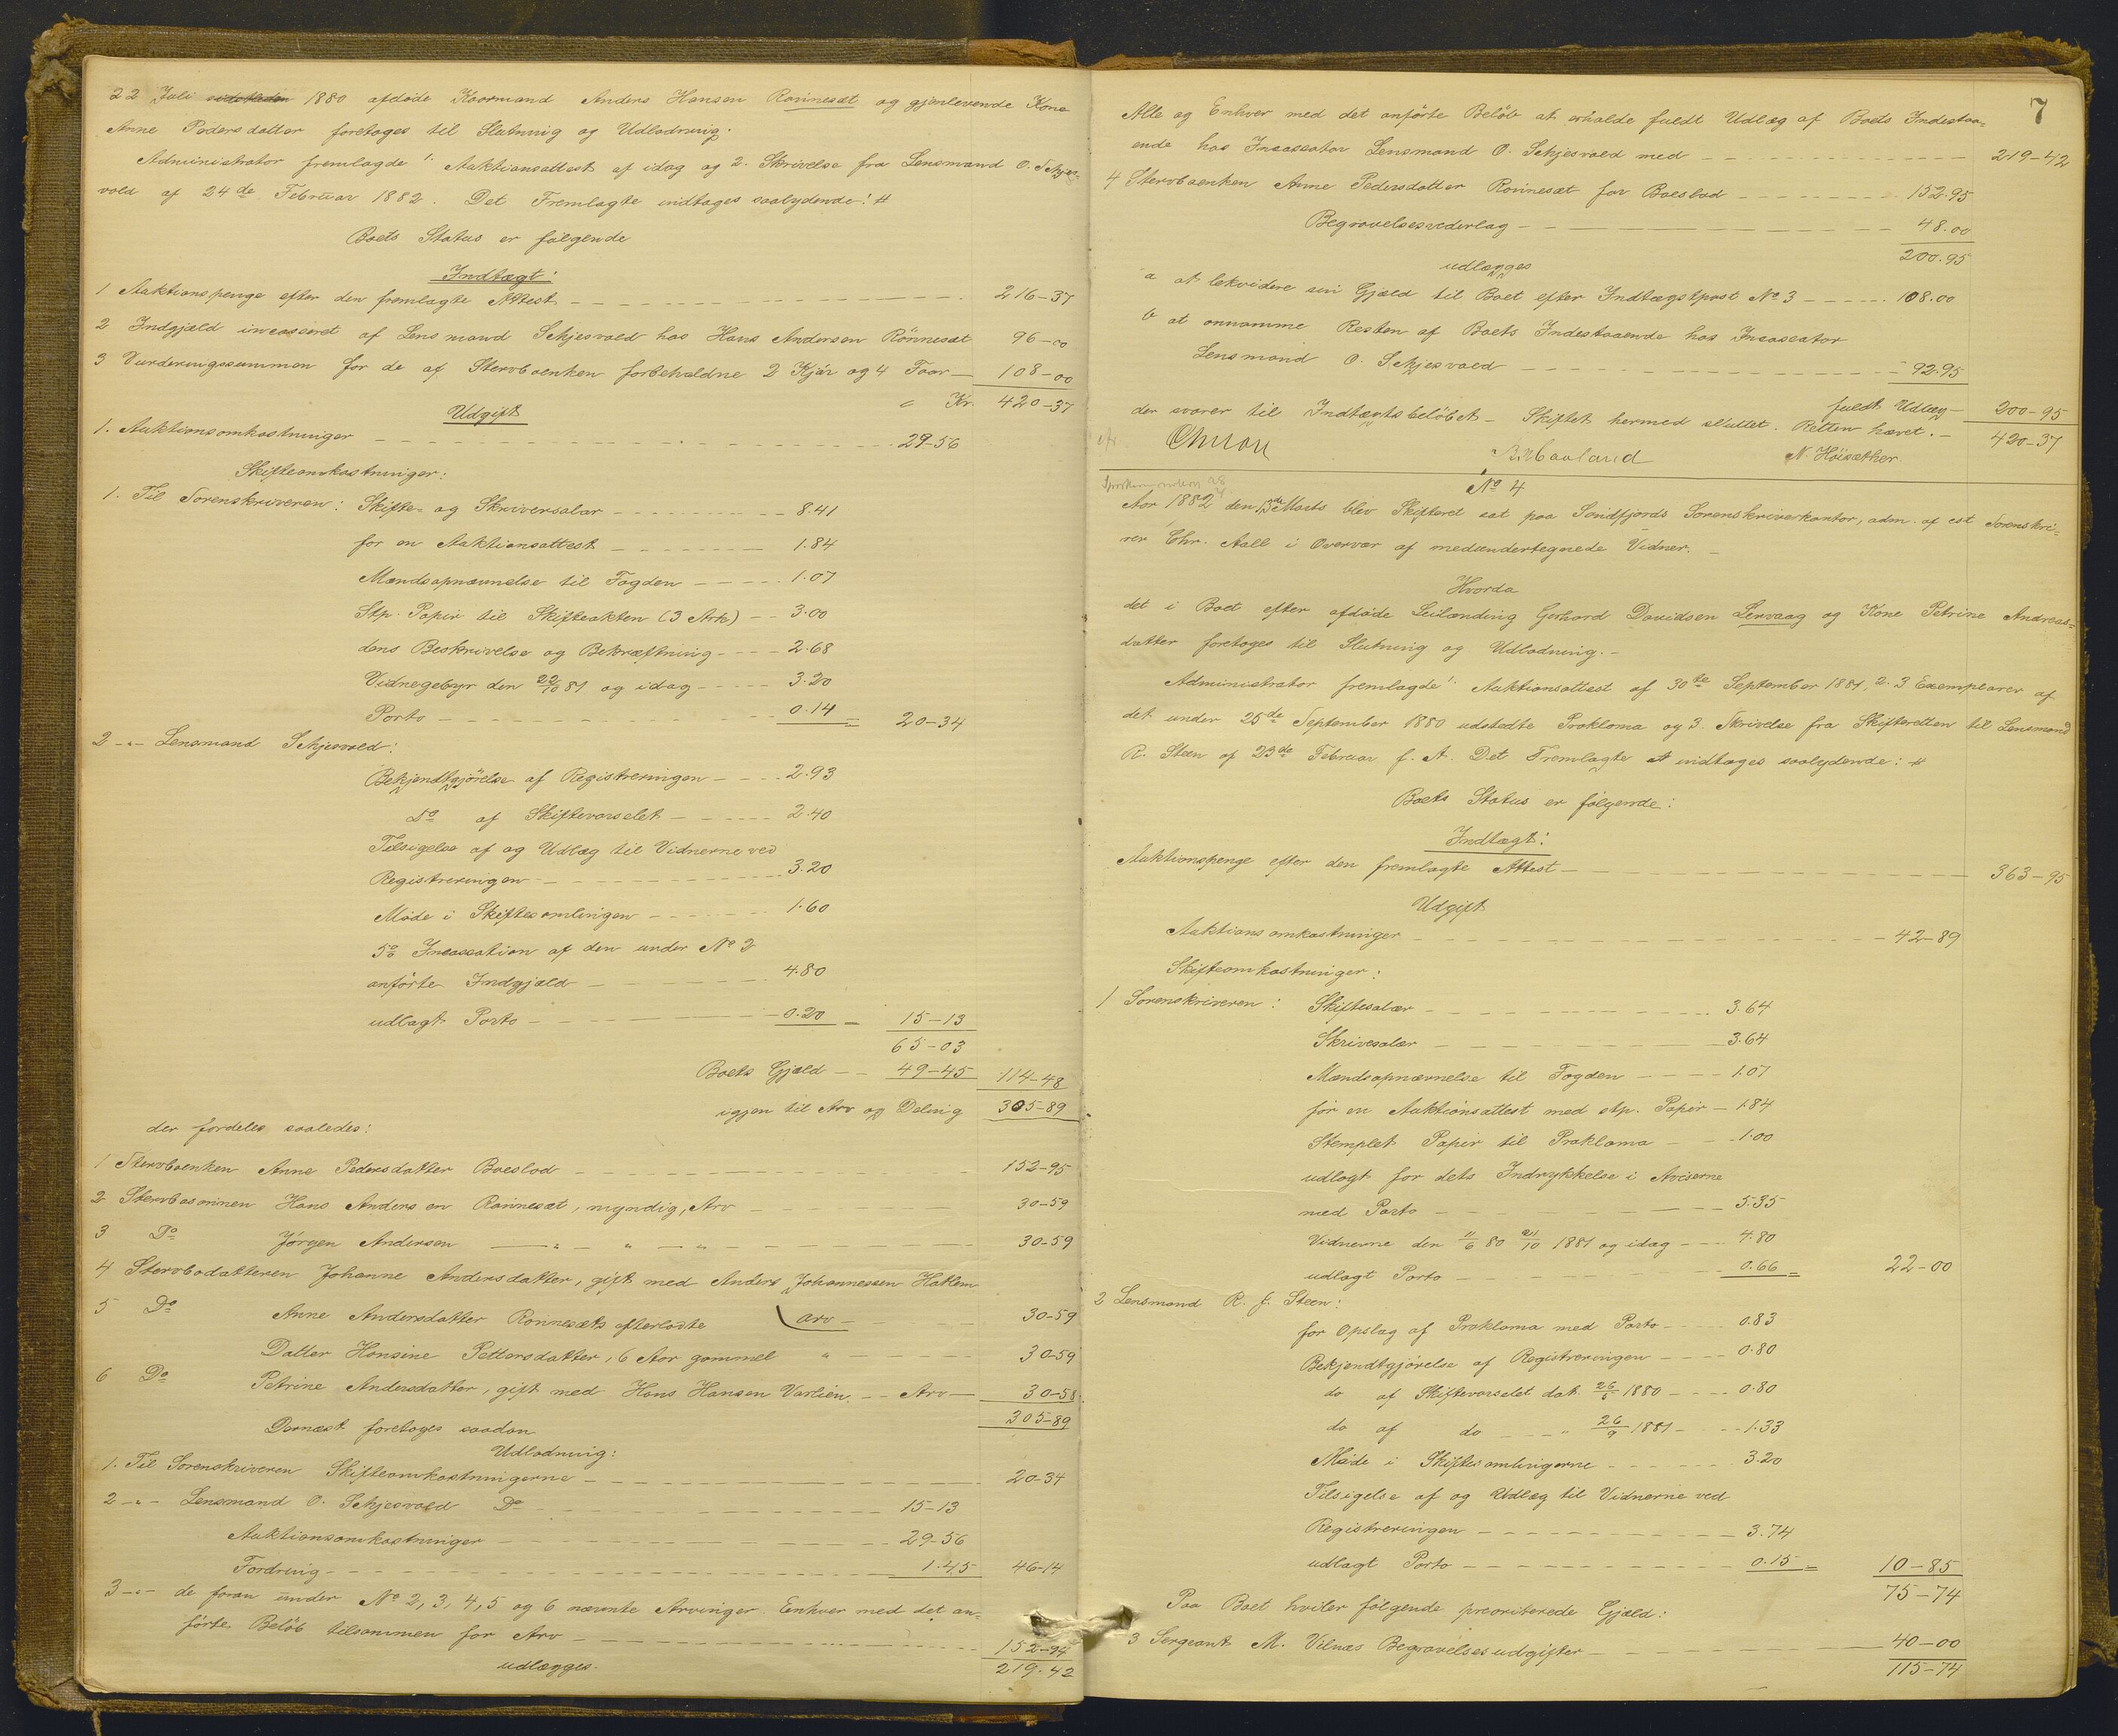 22 Juli sidstleden 1880 afdøde Kaarmand Anders Hansen Rønnesæt og gjenlevende Kone
Anne Pedersdatter foretoges til Slutning og Udlodning.
Administrator fremlagde 1. Auktionsattest af idag og 2. Skrivelse fra Lensmand O. Schjes-
vold af 24de Februar 1882. Det Fremlagte indtages saalydende: #
Boets Status er følgende
Indtægt:
1 Auktionspenge efter den fremlagte Attest 216-37
2 Indgjæld incasseret af Lensmand Schjesvold hos Hans Andersen Rönnesæt 96-00
3 Vurderingssummen for de af Stervboenken forbeholdne 2 Kjør og 4 Faar 108-00
= Kr. 420-37
Udgift
1. Auktionsomkostninger 29-56
Skifteomkostninger:
1. Til Sorenskriveren: Skifte- og Skriversalær 8.41
for en Auktionsattest 1.84
Mandsopnævnelse til Fogden 1.07
Stp. Papir til Skifteakten (3 Ark) 3.00
dens Beskrivelse og Bekræftning 2.68
Vidnegebyr den 22/10 81 og idag 3.20
Porto 0.14 = 20-34
2 -"- Lensmand Schjesvold:
Bekjendtgjörelse af Registreringen 2.93
Do af Skiftevarselet 2.40
Tilsigelse af og Udlæg til Vidnerne ved
Registreringen 3.20
Møde i Skiftesamlingen 1.60
5% Incassation af den under No 2
anførte Indgjæld 4.80
udlagt Porto 0.20 = 15-13
65-03
Boets Gjæld 49-45 114-48
igjen til Arv og Deling 305-89
der fordeles saaledes:
1 Stervboenken Anne Pedersdatter Boeslod 152-95
2 Stervbosønnen Hans Andersen Rønnesæt, myndig, Arv 30-59
3 Do Jørgen Andersen " " " 30-59
4 Stervbodatteren Johanne Andersdatter, gift med Anders Johannessen Hatlem
Arv 30-59
5 Do Anne Andersdatter Rønnesæts efterladte
Datter Hansine Pettersdatter, 6 Aar gammel " 30-59
6 Do Petrine Andersdatter, gift med Hans Hansen Varlien Arv 30-58
305-89
Dernæst foretoges saadan
Udlodning:
1. Til Sorenskriveren Skifteomkostningerne 20-34
2 -"- Lensmand O. Schjesvold Do 15-13
Auktionsomkostninger 29-56
Fordring 1.45 46-14
3 -"- de foran under No 2, 3, 4, 5 og 6 nævnte Arvinger Enhver med det an-
førte Beløb tilsammen for Arv 152-94
udlægges. 219.42
7
Alle og Enhver med det anførte Beløb at erholde fuldt Udlæg af Boets Indestaa-
ende hos Incassator Lensmand O. Schjesvold med 219-42
4 Stervboenken Anne Pedersdatter Rønnesæt for Boeslod 152.95
Begravelsesvederlag 48.00
200.95
udlægges
a at lekvidere sin Gjæld til Boet efter Indtægtspost No 3 108.00
b at annamme Resten af Boets Indestaaende hos Incassator
Lensmand O. Schjesvold 92.95
fuldt Udlæg 200-95
der svarer til Indtægtsbeløbet - Skiftet hermed sluttet. Retten hævet. 420-37
N. Höisæther.
No 4
Aar 1882 den 13de Marts blev Skifteret sat paa Søndfjords Sorenskriverkontor, adm. af cst Sorenskri-
ver Chr. Aall i Overvær af medundertegnede Vidner.
Hvorda
det i Boet efter afdøde Leilænding Gerhard Davidsen Lervaag og Kone Petrine Andreas-
datter foretoges til Slutning og Udlodning.
Administrator fremlagde 1. Auktionsattest af 30te September 1881, 2. 3 Exemplarer af
det under 25de September 1880 udstedte Proklama og 3. Skrivelse fra Skifteretten til Lensmand
R. Steen af 23de Februar f. A. Det Fremlagte indtages saalydende: #
Boets Status er følgende:
Indtægt:
Auktionspenge efter den fremlagte Attest 363-95
Udgift
Auktionsomkostninger 42-89
Skifteomkostninger:
1 Sorenskriveren: Skiftesalær 3.64
Skrivesalær 3.64
Mandsopnævnelse til Fogden 1.07
for en Auktionsattest med stp. Papir 1.84
Stemplet Papir til Proklama 1.00
udlagt for dets Indrykkelse i Aviserne
med Porto 5.35
Vidnerne den 11/6 80 21/10 1881 og idag 4.80
udlagt Porto 0.66 = 22-00
2 Lensmand R. J. Steen:
for Opslag af Proklama med Porto 0.83
Bekjendtgjörelse af Registreringen 0.80
do af Skiftevarselet dat. 1880 0.80
do af do " 26/9 1881 1.33
Møde i Skiftesamlingerne 3.20
Tilsigelse af og Udlæg til Vidnerne ved
Registreringen 3.74
udlagt Porto 0.15 = 10-85
75-74
Paa Boet hviler følgende preoriterede Gjæld:
3 Sergeant M. Vilnæs Begravelsesudgifter 40-00
115-74